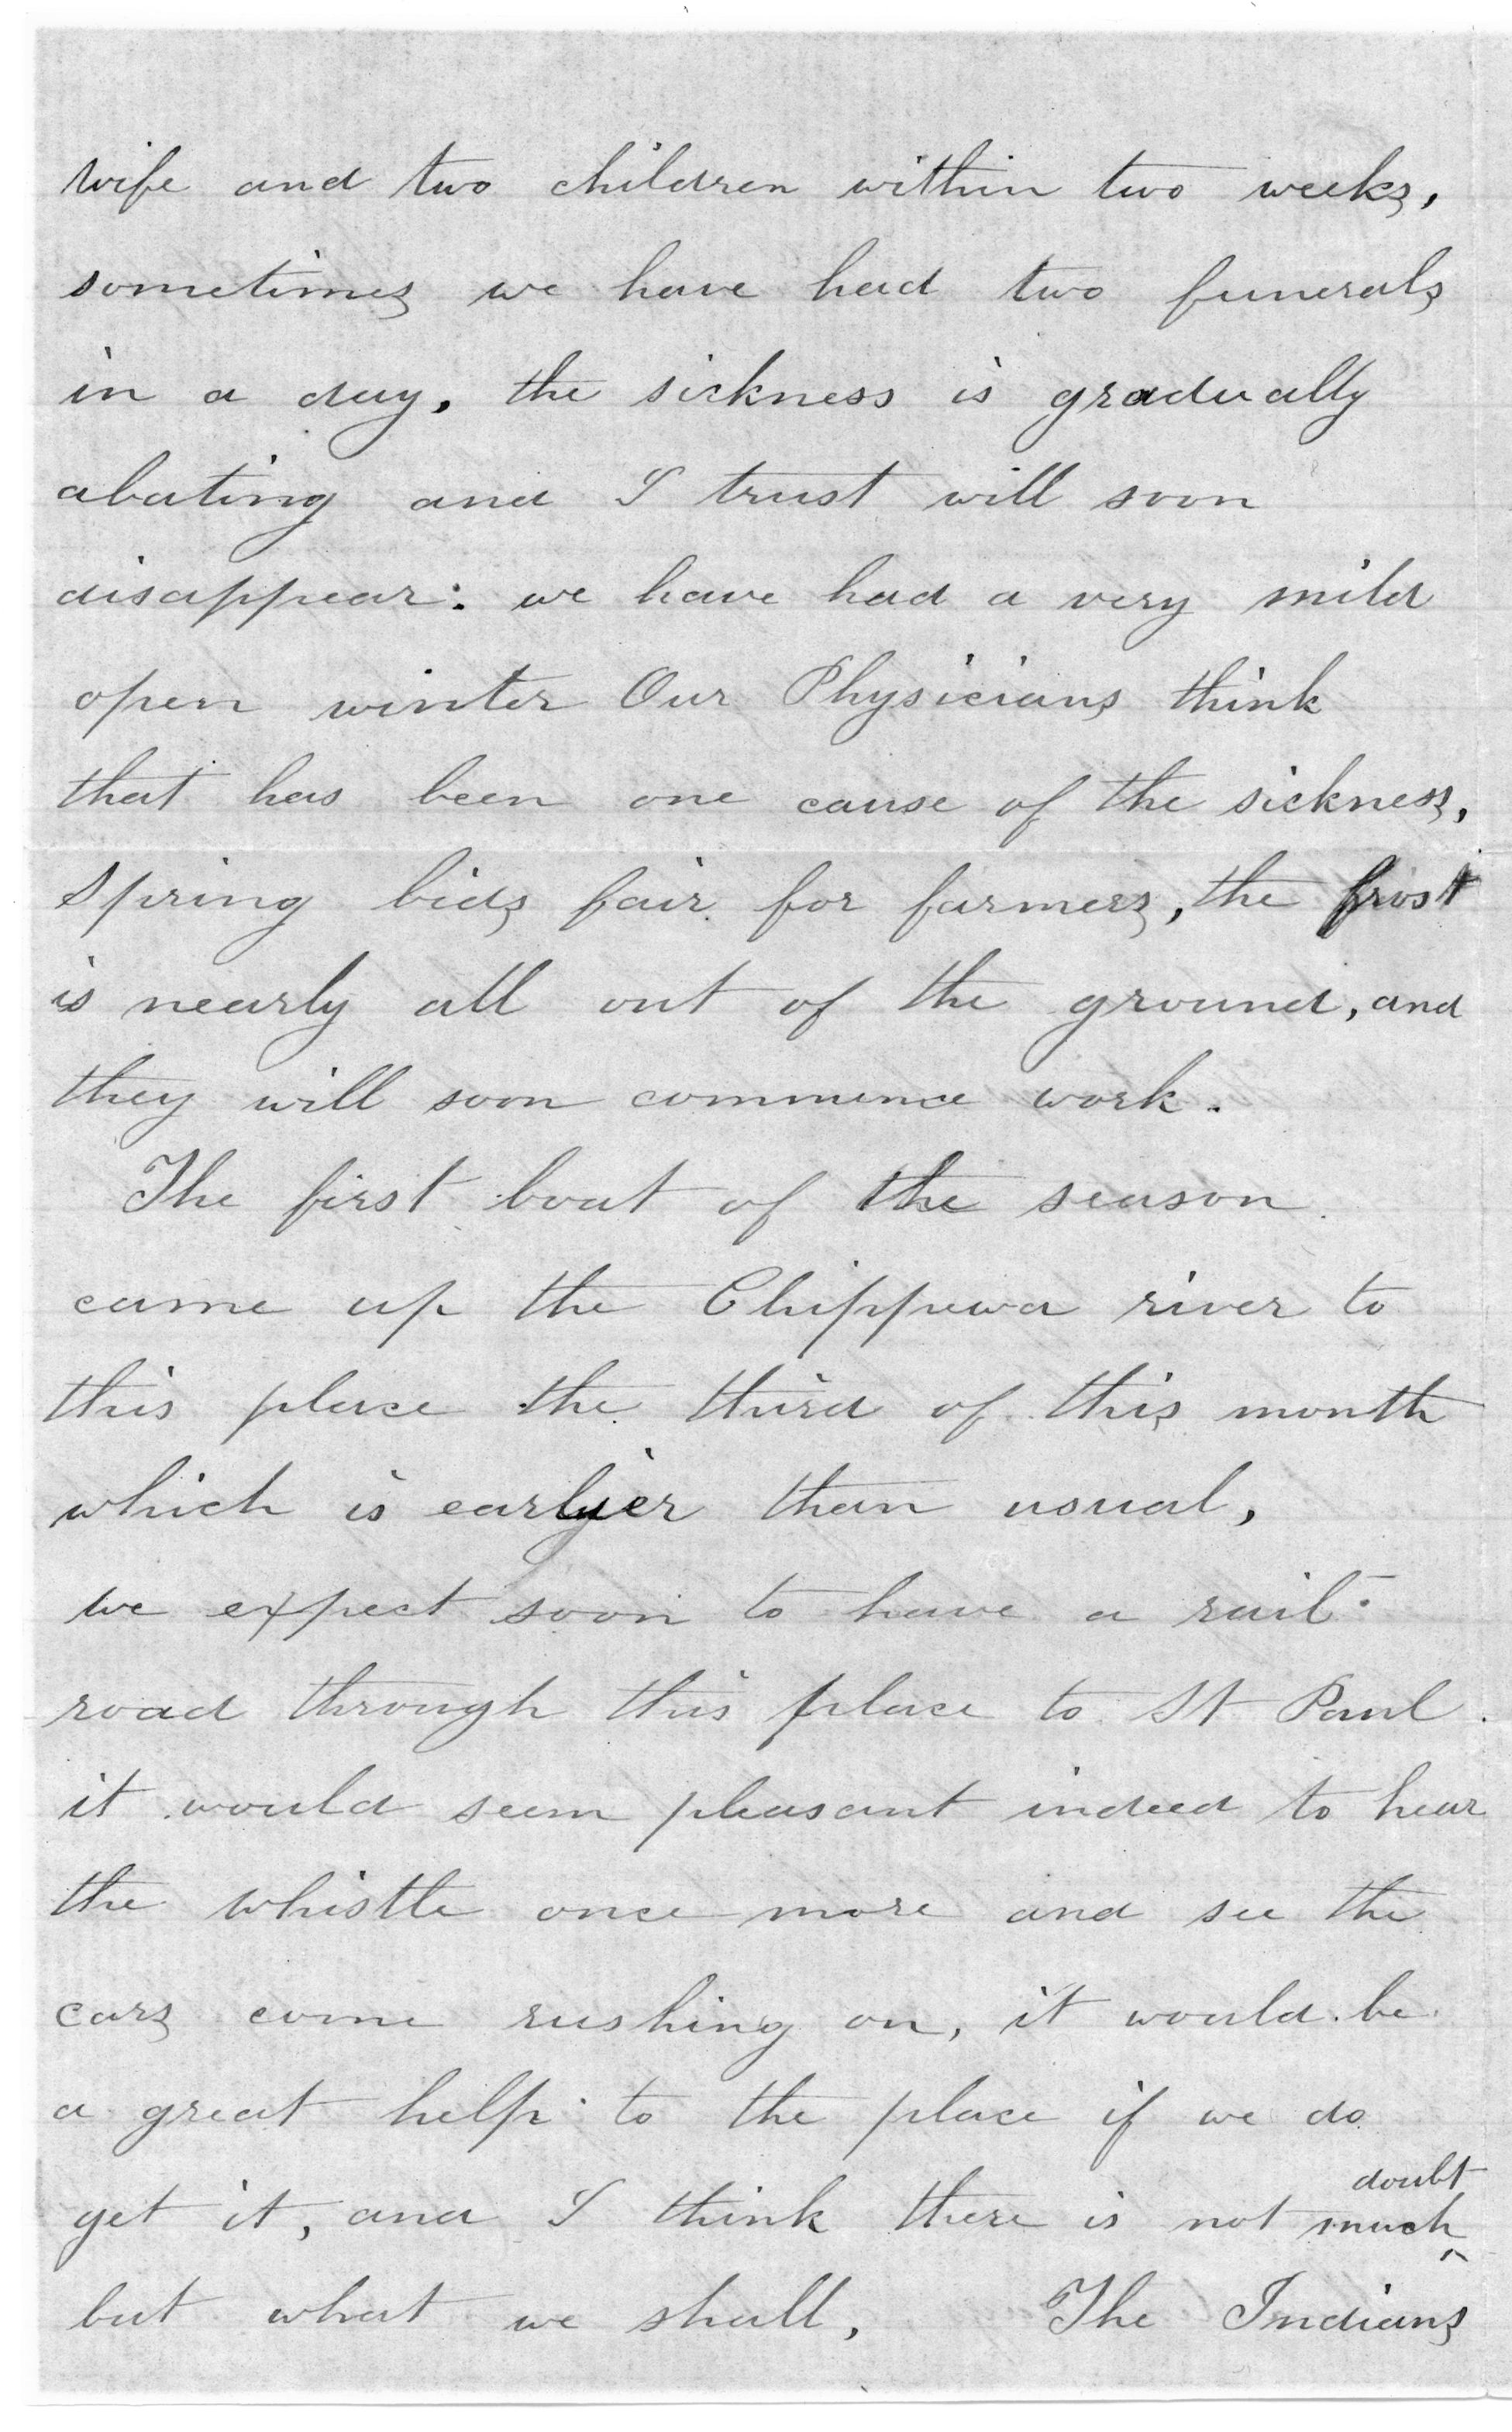 wife and two children within two weeks,
sometimes we have had two funerals
in a day, the sickness is gradually
abating and I trust will soon
disappear: we have had a very mild
open winter Our Physicians think
that has been one cause of the sickness,
spring bids fair for farmers, the frost
is nearly all out of the ground, and
they will soon commence work.
The first boat of the season
came up the Chippewa river to
this place the third of this month
which is earlyier than usual,
we expect soon to have a rail-
road through this place to St Paul.
it would seem pleasant indeed to hear
the whistle once more and see the
cars come rushing on, it would be
a great help to the place if we do
doubt
get it, and I think there is not much ^
but what we shall, The Indians